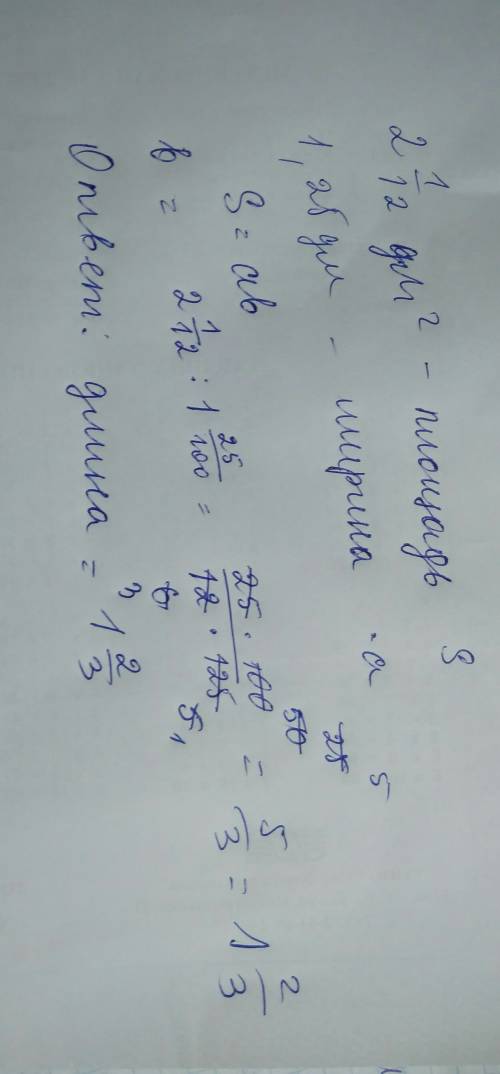 2 1/12 дм² - площадь S
1,25 дм - ширина . a
S = ab
b = 2 1/12 : 1 25/100 = 25 · 100 / 12 · 125 = 5/3 = 1 2/3
50 25 5
6 3 5 1
Ответ: длина = 1 2/3